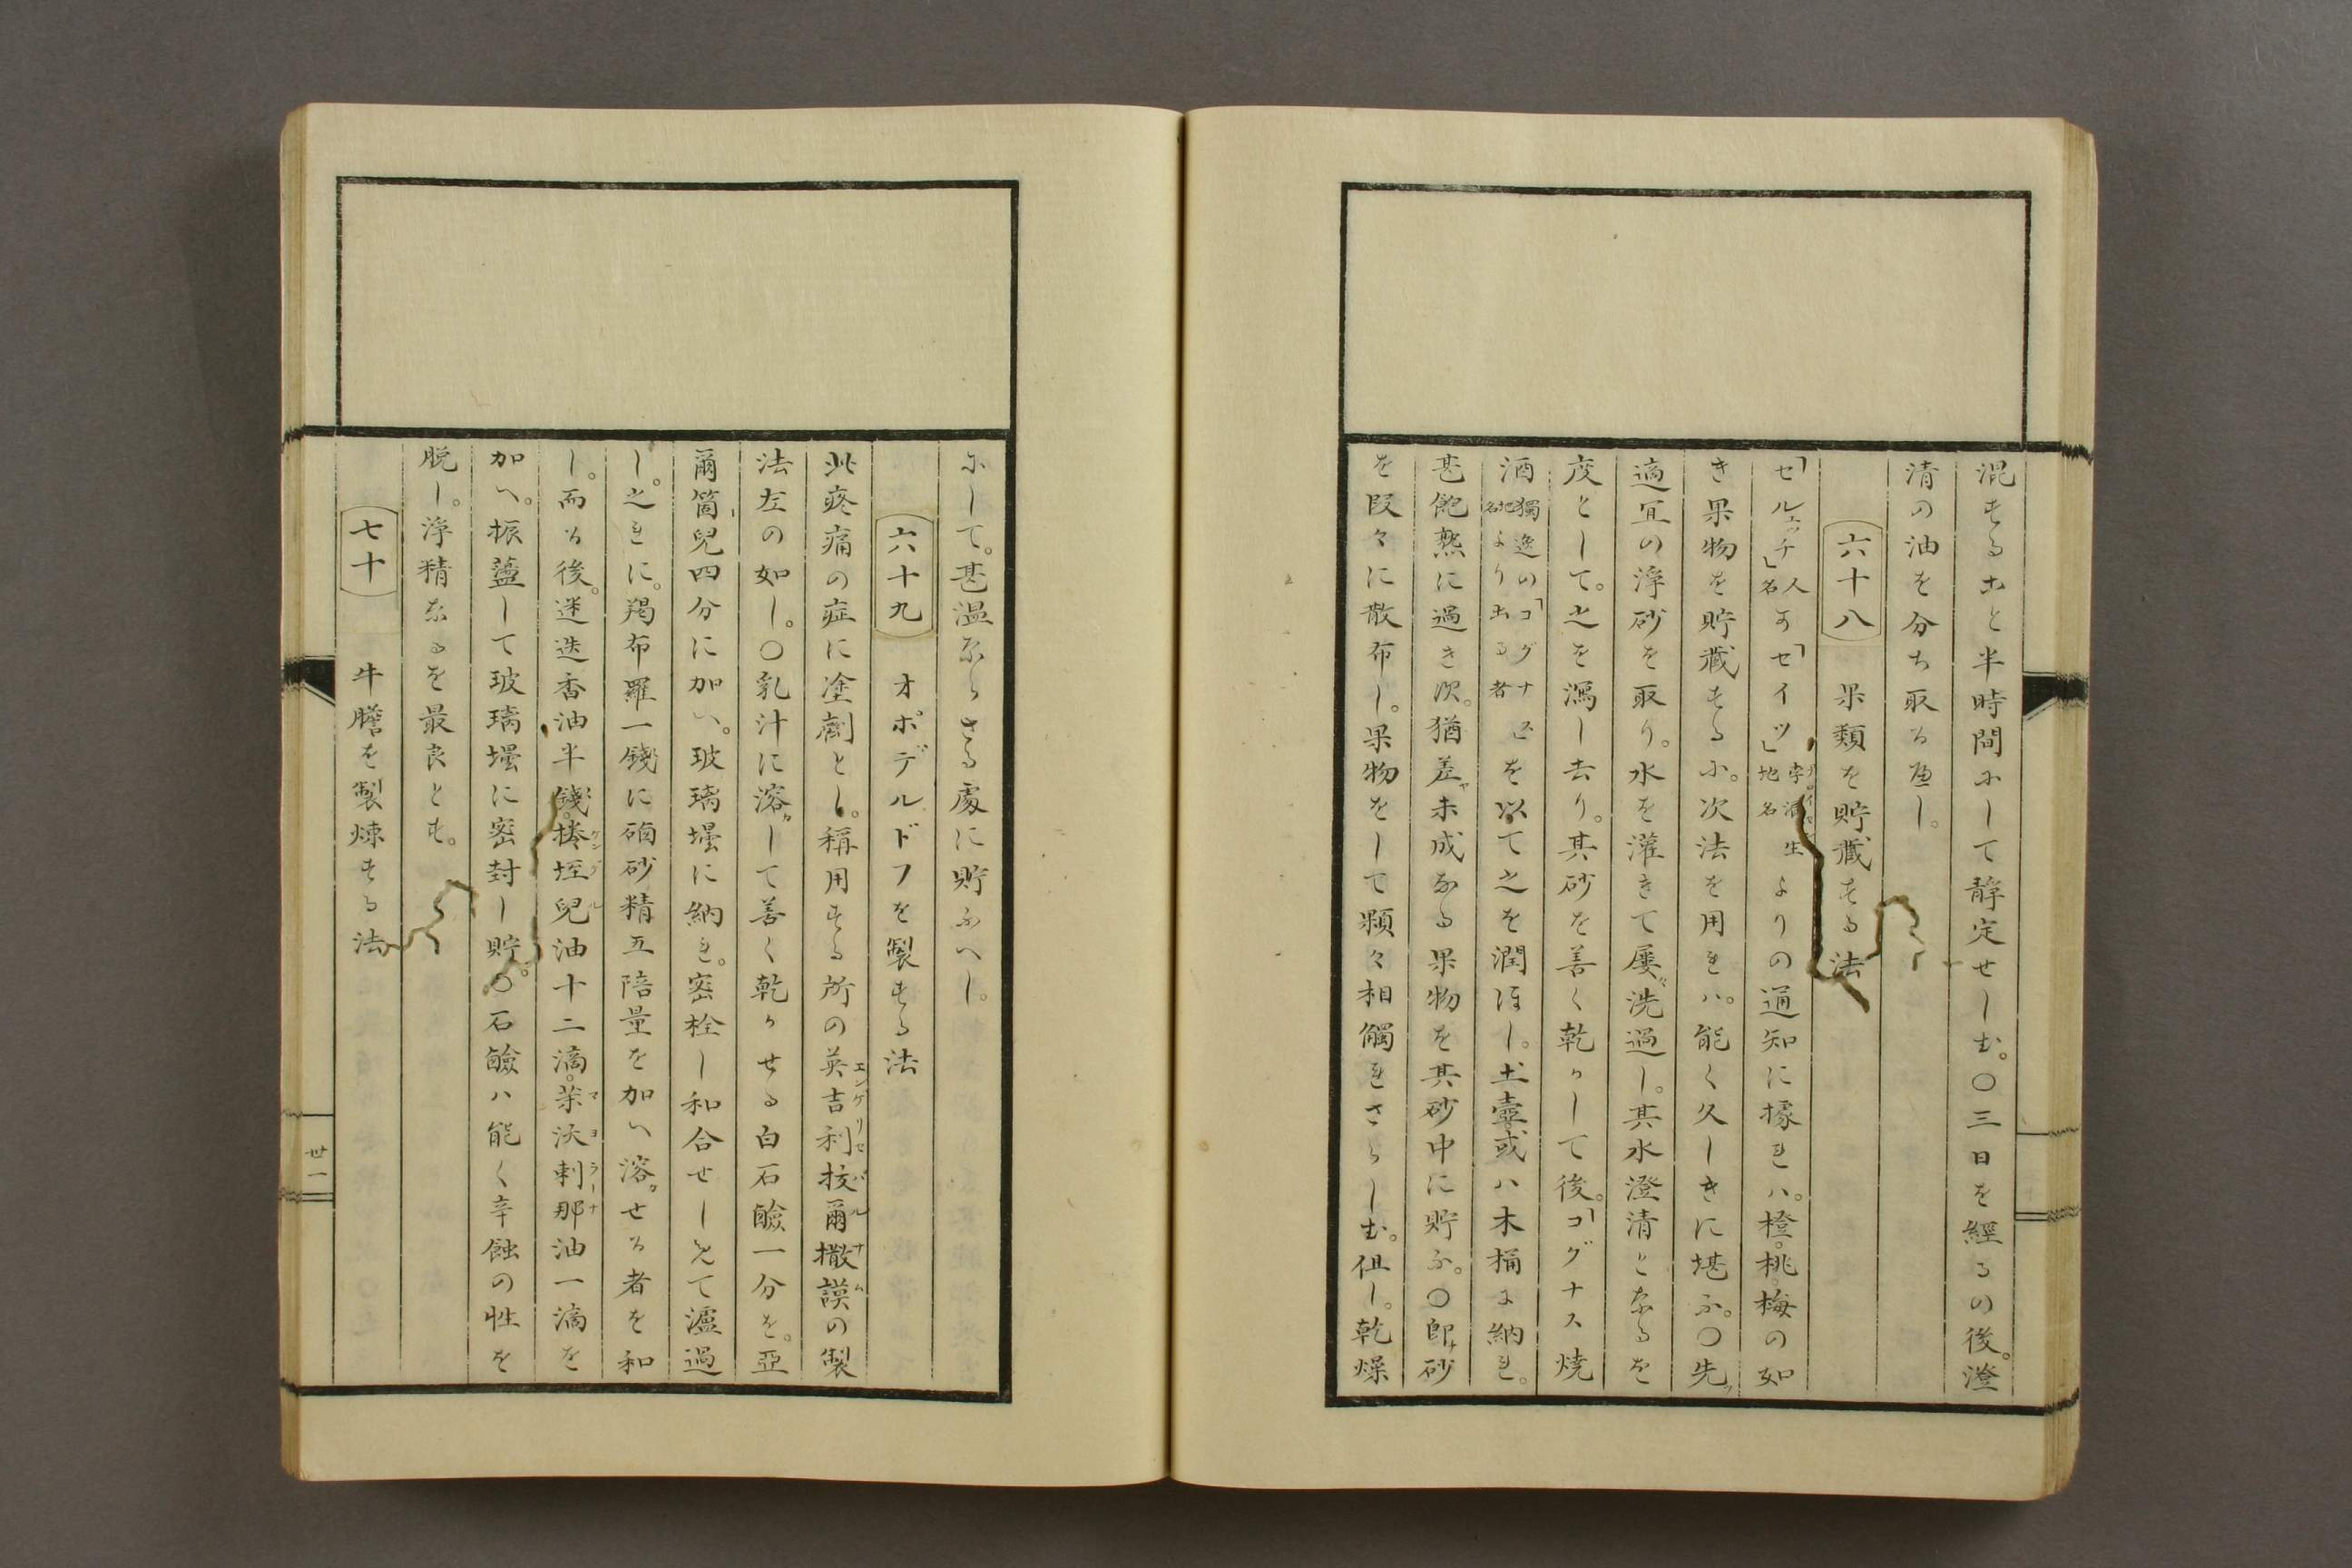 混する土と半時間にして静定せしむ。〇三日を經るの後。澄
清の油を分ち取るべし。
六十八 果類を貯藏する法
「セルエッチ」人名 「セイツ」地名 よりの通知に據れハ。橙。桃。梅の如
き果物を貯藏するに。次法を用れハ。能く久しきに堪ふ。〇先ツ
適宜の淨砂を取り。水を灌きて屡々洗過し。其水澄清となるを
度として。之を瀉し去り。其砂を善く乾かして後。「コグナス燒
酒獨逸の「コグナ」地名より出る者 を以て之を潤ほし。土壷或ハ木桶に納れ。
甚飽熟に過き次。猶差ヤ未成なる果物を其砂中に貯ふ。〇郎チ砂
を段々に散布し。果物をして顆々相觸れさらしむ。但し。乾燥
にして。甚温ならさる處に貯ふへし。
六十九 オポデルドフを製する法
此疼痛の症に塗劑とし。稱用する所の英吉利抜爾撒謨エングリセバルサムの製
法左の如し。〇乳汁に溶カして善く乾かせる白石鹸一分を。亞
爾箇兒四分に加へ。玻璃壜に納れ。密栓し和合せしめて濾過
し。之れに。羯布羅一錢に硇砂精五陪量を加へ溶カせる者を和
し。而る後。迷迭香油半錢。油十二滴。茉沃剌那マヨラーナ油一滴を
加へ。振盪して玻璃壜に密封し貯。〇石鹸ハ能く辛蝕の性を
脱し。淨精なるを最良とす。
七十 牛膽を製煉する法
卅一